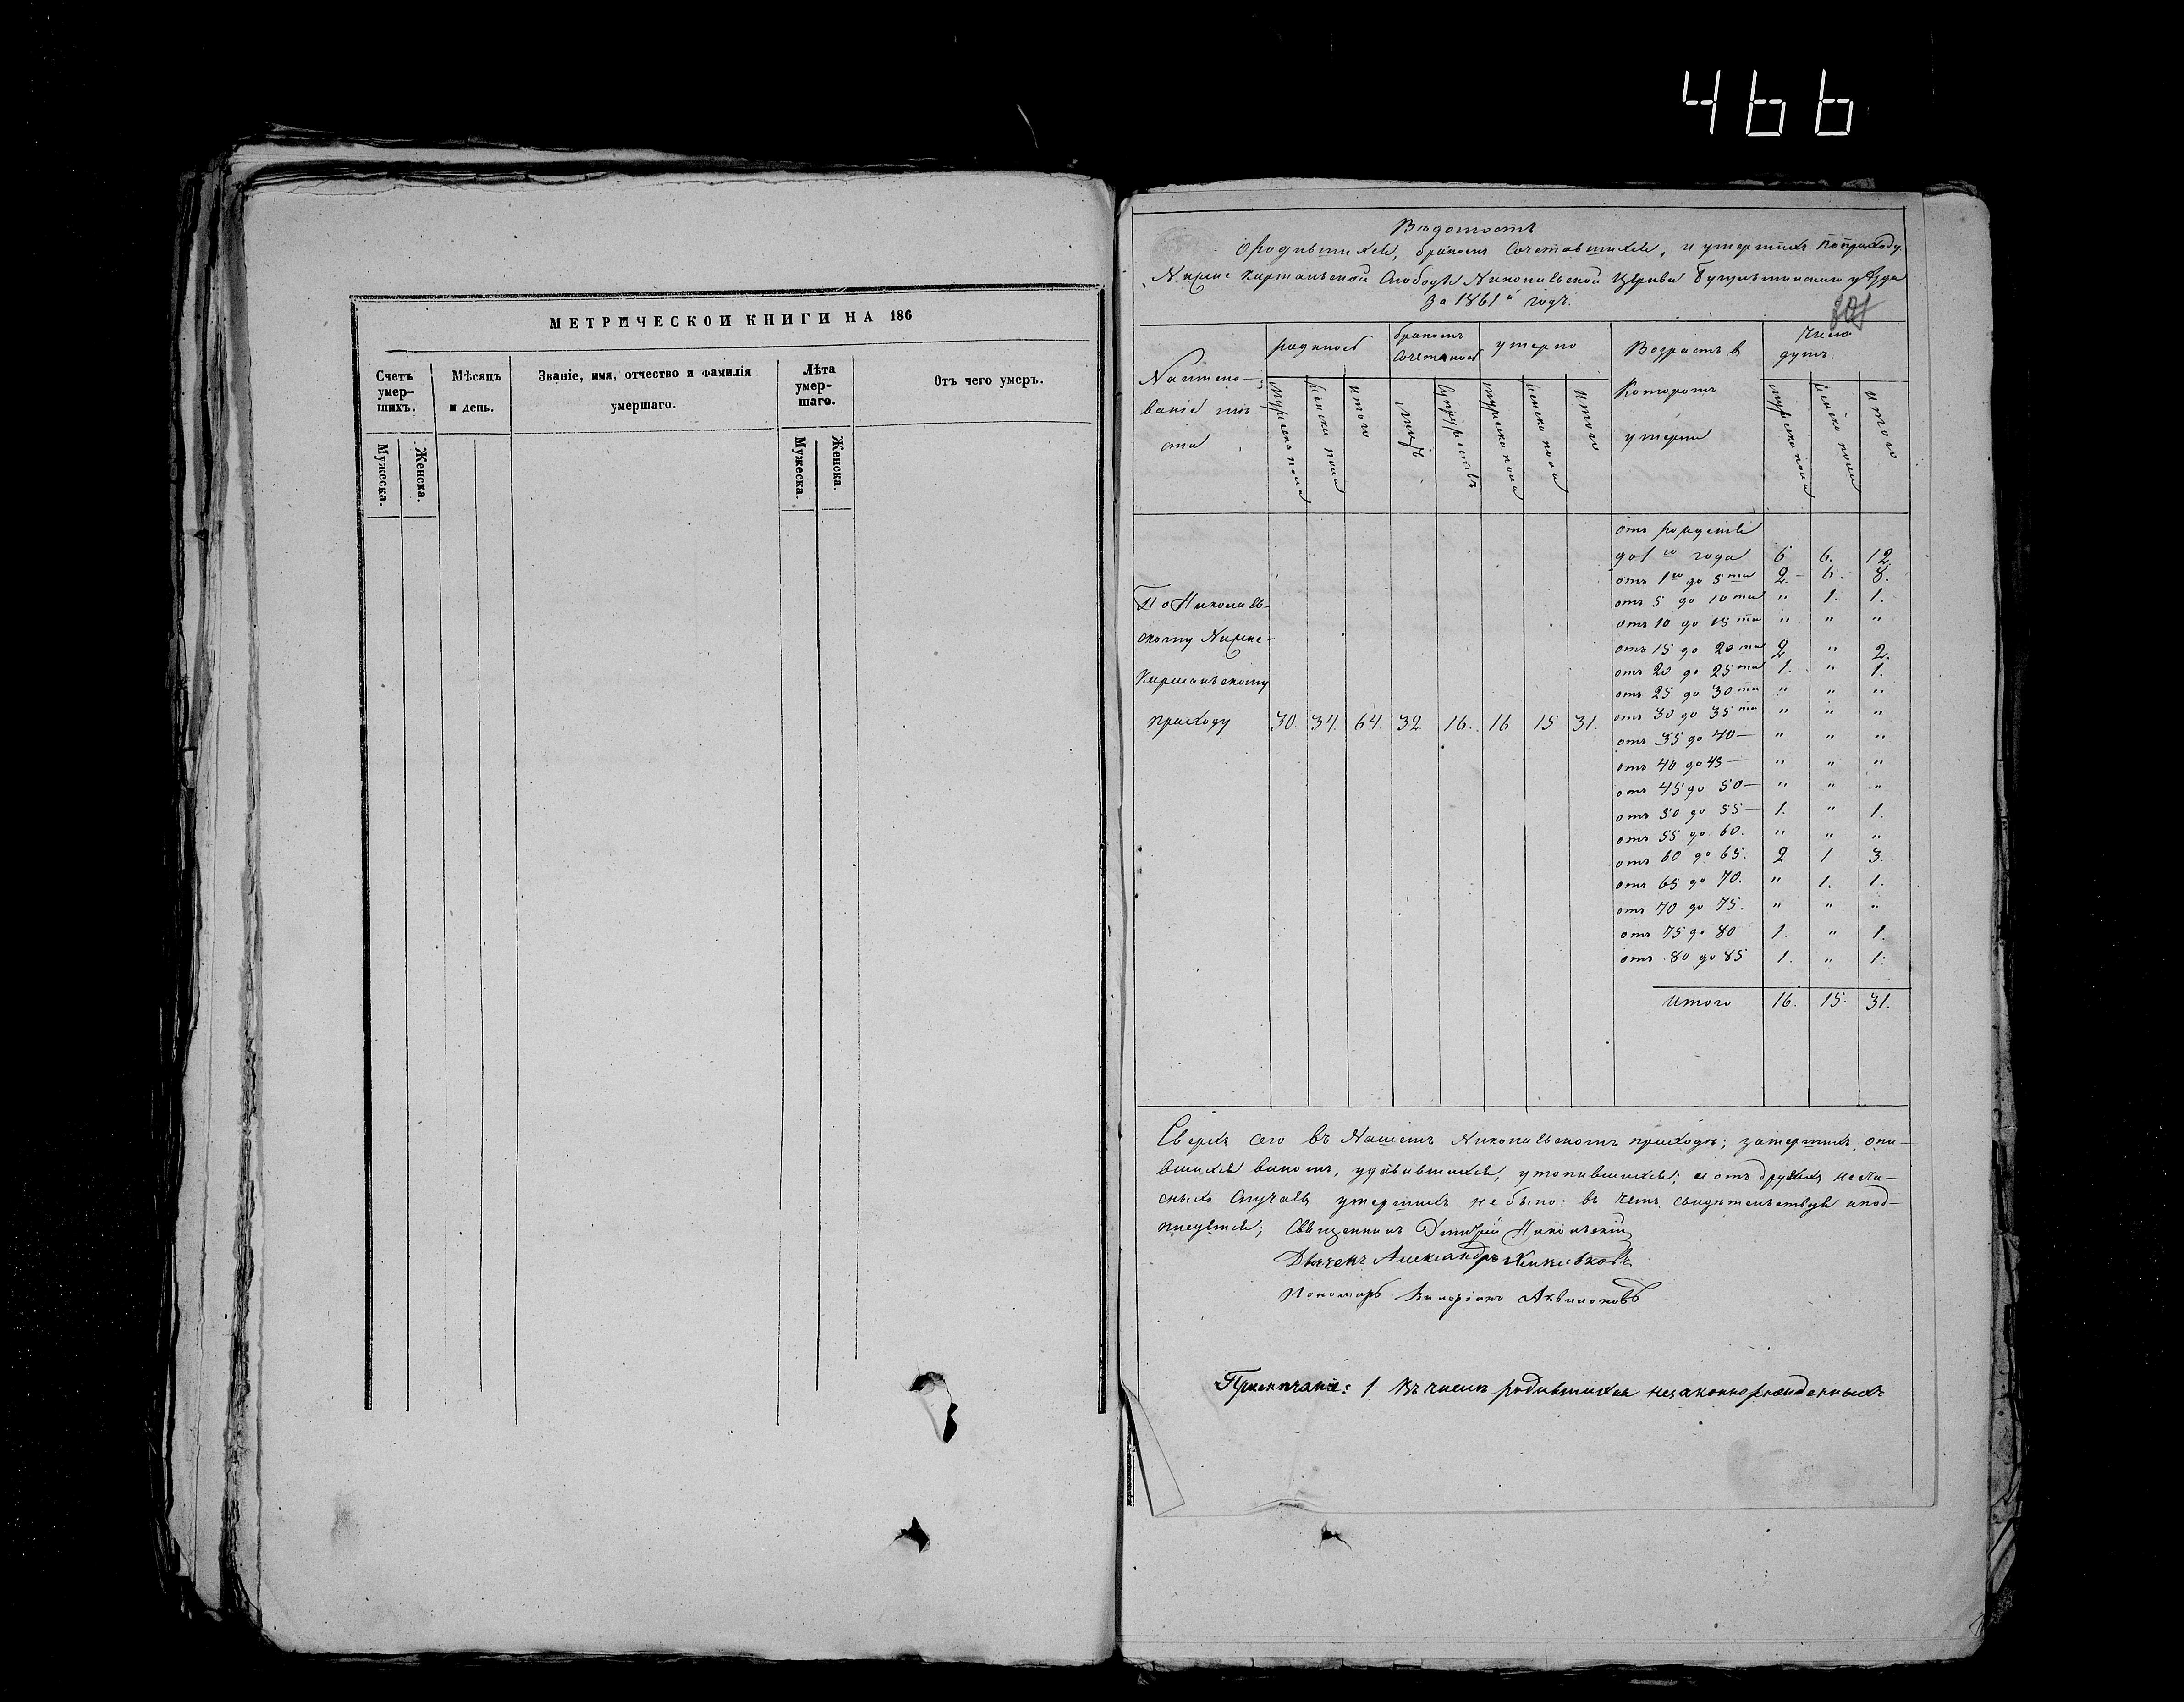 466
МЕТРИЧЕСКОЙ КНИГИ НА 186
Счетъ умер-шихъ.
Мѣсяцъ и день.
Званіе, имя, отчество и фамилія умершаго.
Лѣта умер-шаго.
Отъ чего умеръ.
Мужеска.
Женска.
Мужеска.
Женска.
Вѣдомость
о Родившихся, бракомъ Сочетавшихся, и умершихъ по приходу
Карманской Слободы Никольской Церкви уѣзда
за 1861й годъ.
Наимено-
ваніе мѣ-
ста
родилось
бракомъ
Сочеталось
умерло
Возрастъ в
Которомъ
умерли
Число
душъ.
Мужеска пола
Женска пола
Итого
Лицъ
Супружествъ
Мужеска пола
Женска пола
Итого
Мужеска пола
Женска пола
Итого
отъ рожденія
до 1го года 6 6. 12.
отъ 1го до 5ти 2. 6. 8.
отъ 5 до 10ти " 1. 1.
отъ 10 до 15ти " " "
отъ 15 до 20ти 2 " 2.
отъ 20 до 25ти 1. " 1.
отъ 25 до 30ти " " "
отъ 30 до 35ти " " "
отъ 35 до 40— " " "
отъ 40 до 45— " " "
отъ 45 до 50— " " "
отъ 50 до 55— 1. " 1.
отъ 55 до 60. " " "
отъ 60 до 65. 2 1 3.
отъ 65 до 70. " 1. 1.
отъ 70 до 75. " " "
отъ 75 до 80 1. " 1.
отъ 80 до 85 1. " 1.
Итого 16. 15. 31.
По Николаев-
скому
приходу 30. 34. 64. 32. 16. 16 15 31.
Сверхъ сего въ Нашемъ приходѣ; замерзшихъ, опи-
вшихся виномъ, удавившихся, утопившихся; и отъ другихъ несча-
сныхъ Случаевъ умершихъ не было: въ чемъ и под-
писуемся; Священникъ Дмитрій Никольскій
Дьячекъ Александръ
Пономарь Аквилоновъ
Примѣчаніе: 1 Въ числѣ родившихся незаконнорожденныхъ